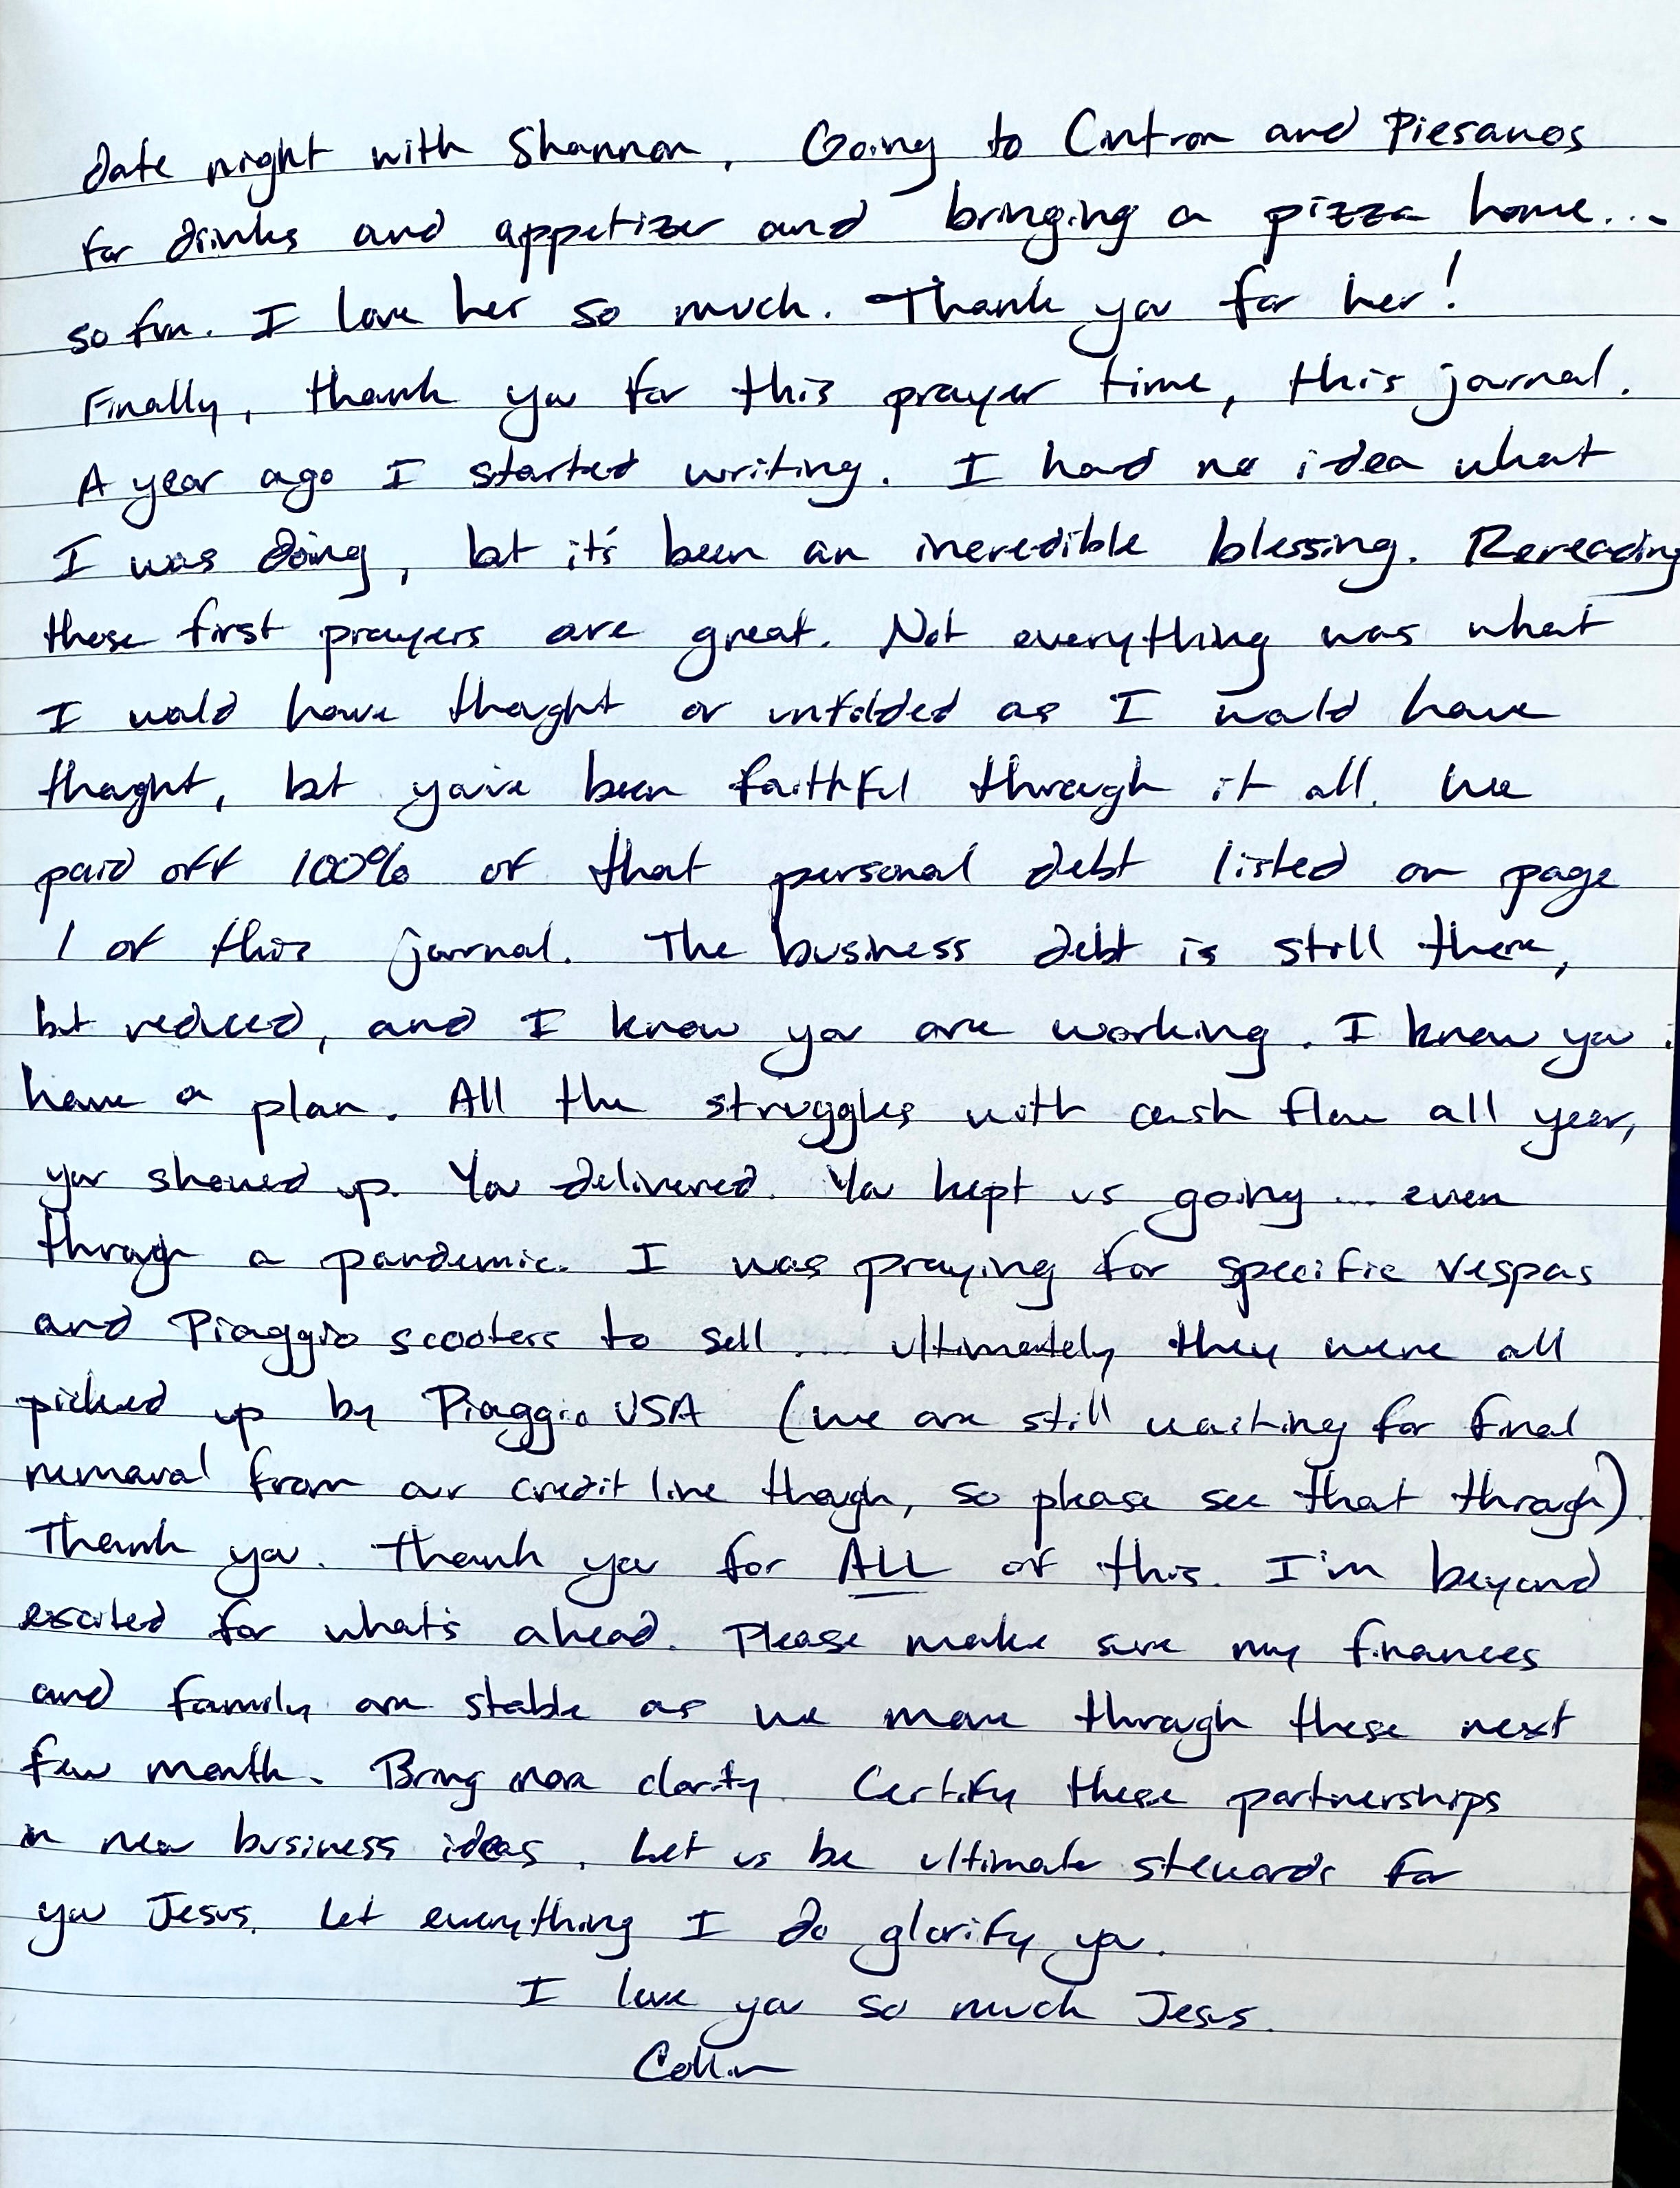 Date night with Shannon. Going to Cintron and Piesanos
for drinks and appetizer and bringing a pizza home...
so fun. I love her so much. Thank you for her!
Finally, thank you for this prayer time, this journal.
A year ago I started writing. I had no idea what
I was doing, but it's been an incredible blessing. Rereading
those first prayers are great. Not everything was what
I would have thought or unfolded as I would have
thought, but you've been faithful through it all. We
paid off 100% of that personal debt listed on page
1 of this journal. The business debt is still there,
but reduced, and I know you are working. I know you
have a plan. All the struggles with cash flow all year,
you showed up. You delivered. You kept us going... even
through a pandemic. I was praying for specific Vespas
and Piaggio scooters to sell... ultimately they were all
picked up by Piaggio USA (we are still waiting for final
removal from our credit line though, so please see that through)
Thank you. Thank you for ALL of this. I'm beyond
excited for what's ahead. Please make sure my finances
and family are stable as we move through these next
few month. Bring more clarity. Certify these partnerships
in new business ideas. Let us be ultimate stewards for
you Jesus. Let everything I do glorify you.
I love you so much Jesus.
Collin